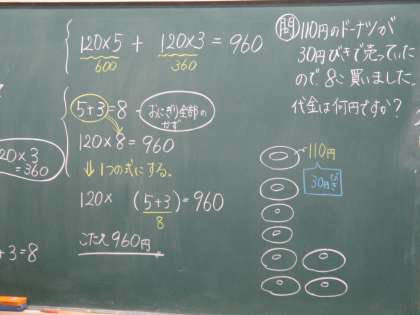 120×5 + 120×3 = 960
600
360
5+3=8
おにぎり全部の
かず
120×8=960
↓1つの式にする。
120× (5+3)=960
8
こたえ 960円
120×3
=360
+3=8
問 110円のドーナツが
30円びきで売っていた
ので8こ買いました。
代金は何円ですか？
110円
30円びき